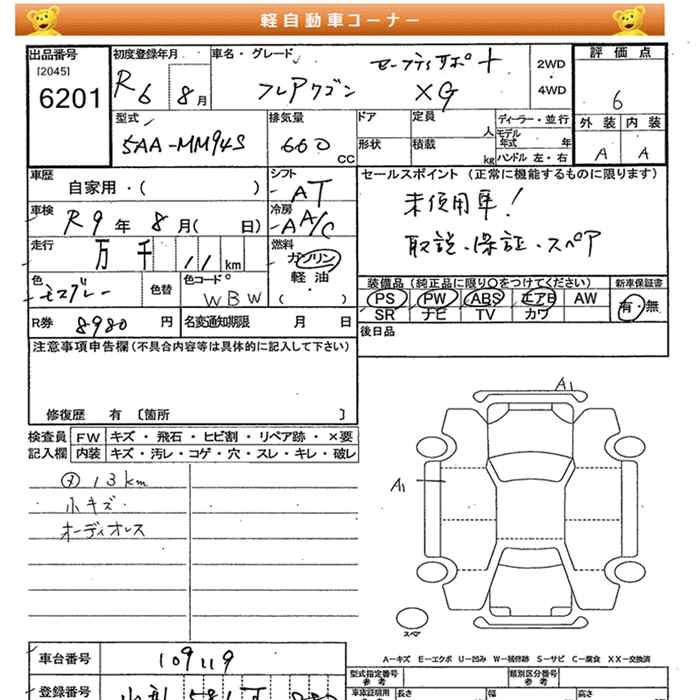 軽自動車コーナー
出品番号 初度登録年月 車名・グレード 評価点
[2045] セーフティサポート 2WD
6201 R6 8月 フレアワゴン XG ・ 6
4WD
型式 排気量 ドア 定員 ディーラー・並行 外装 内装
5AA-MM94S 660 人 モデル
CC 形状 積載 年式 年 A A
kg ハンドル 左・右
車歴 シフト セールスポイント (正常に機能するものに限ります)
自家用・( ) AT
車検 冷房 未使用車!
R9年 8月( 日) AA/C
走行 燃料 取説・保証・スペア
万 千 11 km ガソリン
軽油
色 色替 色コード ・ 装備品 (純正品に限り○をつけてください) 新車保証書
モスグレー WBW ( ) PS PW ABS エアB AW 有・無
SR ナビ TV カワ
R券 8980 円 名変通知期限 月 日 後日品
注意事項申告欄 (不具合内容等は具体的に記入して下さい)
修復歴 有 〔箇所 〕
検査員 FW キズ・飛石・ヒビ割・リペア跡・×要
記入欄 内装 キズ・汚レ・コゲ・穴・スレ・キレ・破レ
A1
メ 13km
A1
小キズ
オーディオレス
スペア
A-キズ E-エクボ U-凹み W-補修跡 S-サビ C-腐食 XX-交換済
車台番号 109119
型式指定番号 参考 類別区分番号 参考
登録番号
車庫証明用 長さ 幅 高さ